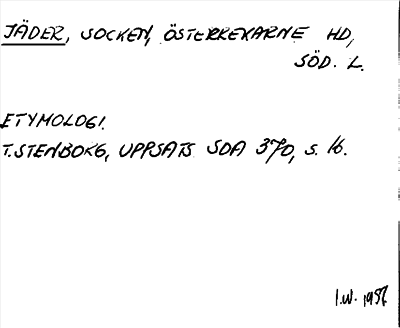 JÄDER, SOCKEN, ÖSTERREKARNE HD,
SÖD. L.
ETYMOLOGI.
T. STENBOKG, UPPSATS SOA 370, S. 16.
I.W. 1957.